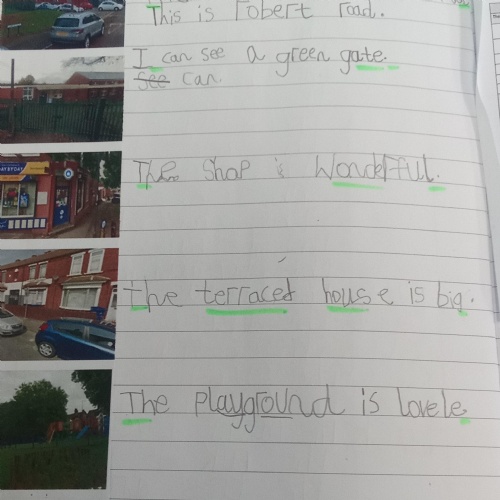 This is Robert road.
I can see a green gate.
See can
The Shop is Wonderful.
The terraced house is big.
The playground is lovele.